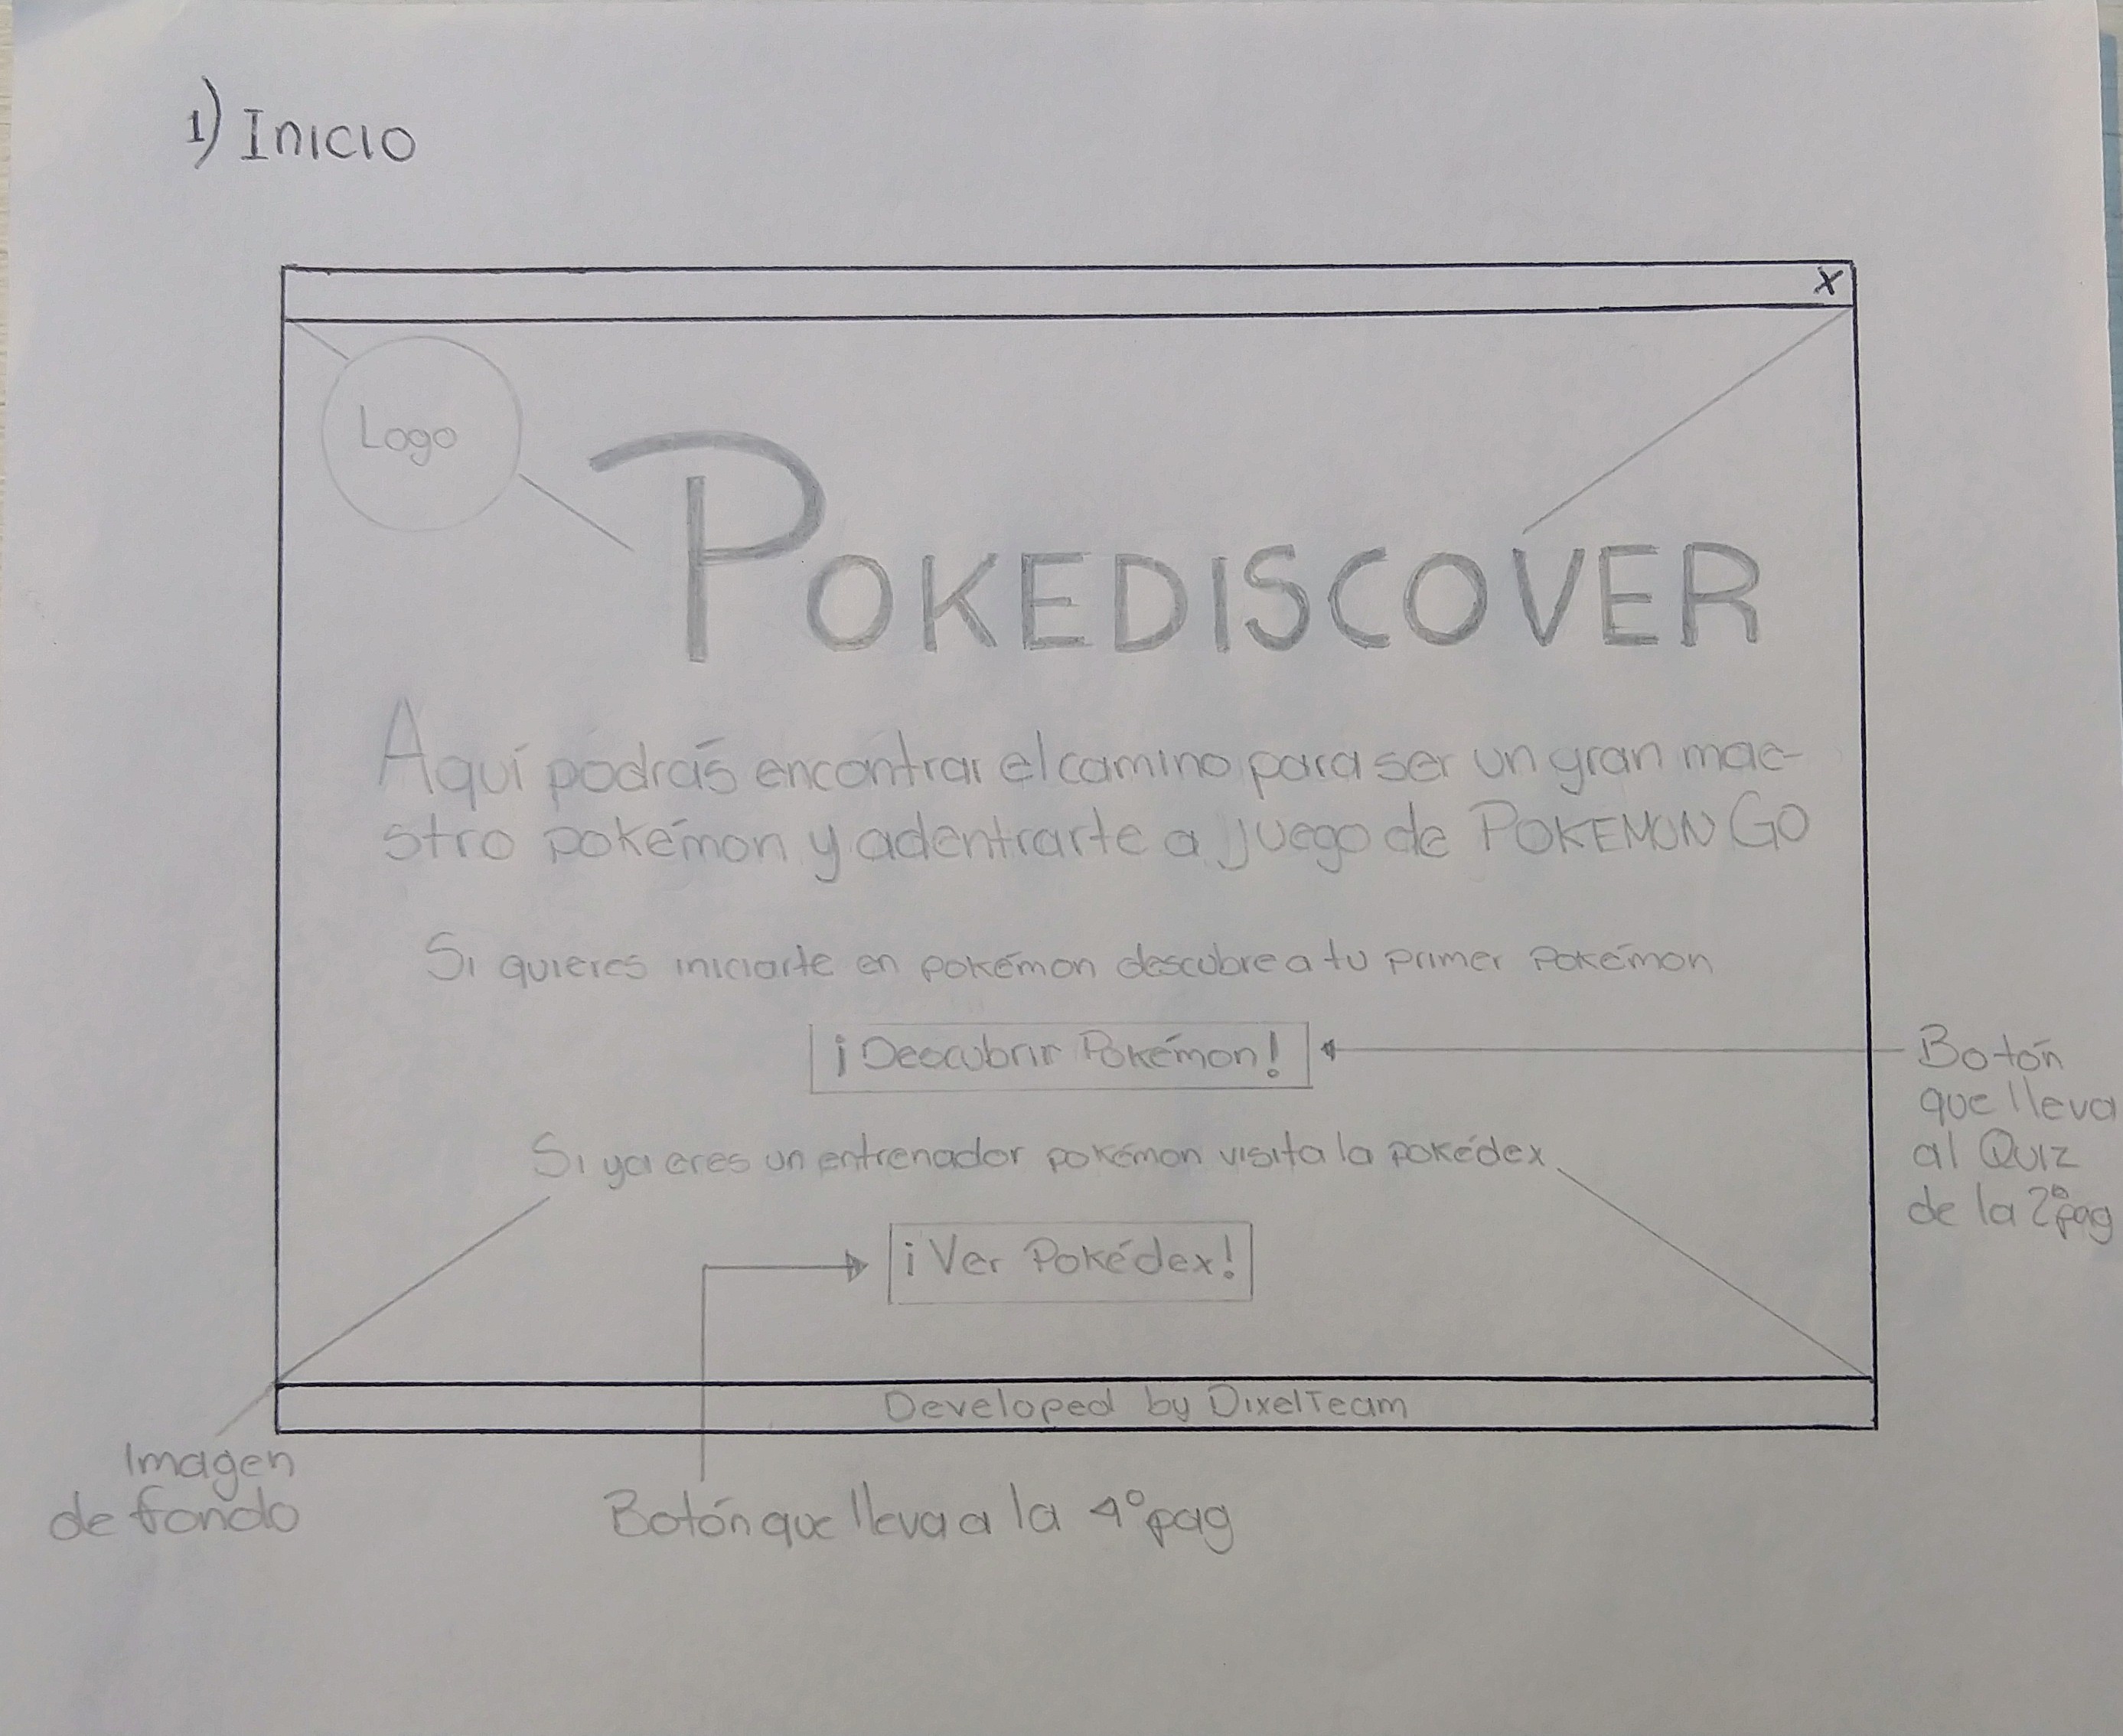 1) Inicio
X
Logo
POKEDISCOVER
Aquí podrás encontrar el camino para ser un gran mae-
stro pokémon y adentrarte a juego de POKEMON GO
Si quieres iniciarte en pokémon descubre a tu primer pokémon
¡Descubrir Pokémon!
Botón
que lleva
al Quiz
de la 2º pag
Si ya eres un entrenador pokémon visita la pokédex
¡Ver Pokédex!
Developed by DixelTeam
Imagen
de fondo
Botón que lleva a la 4º pag